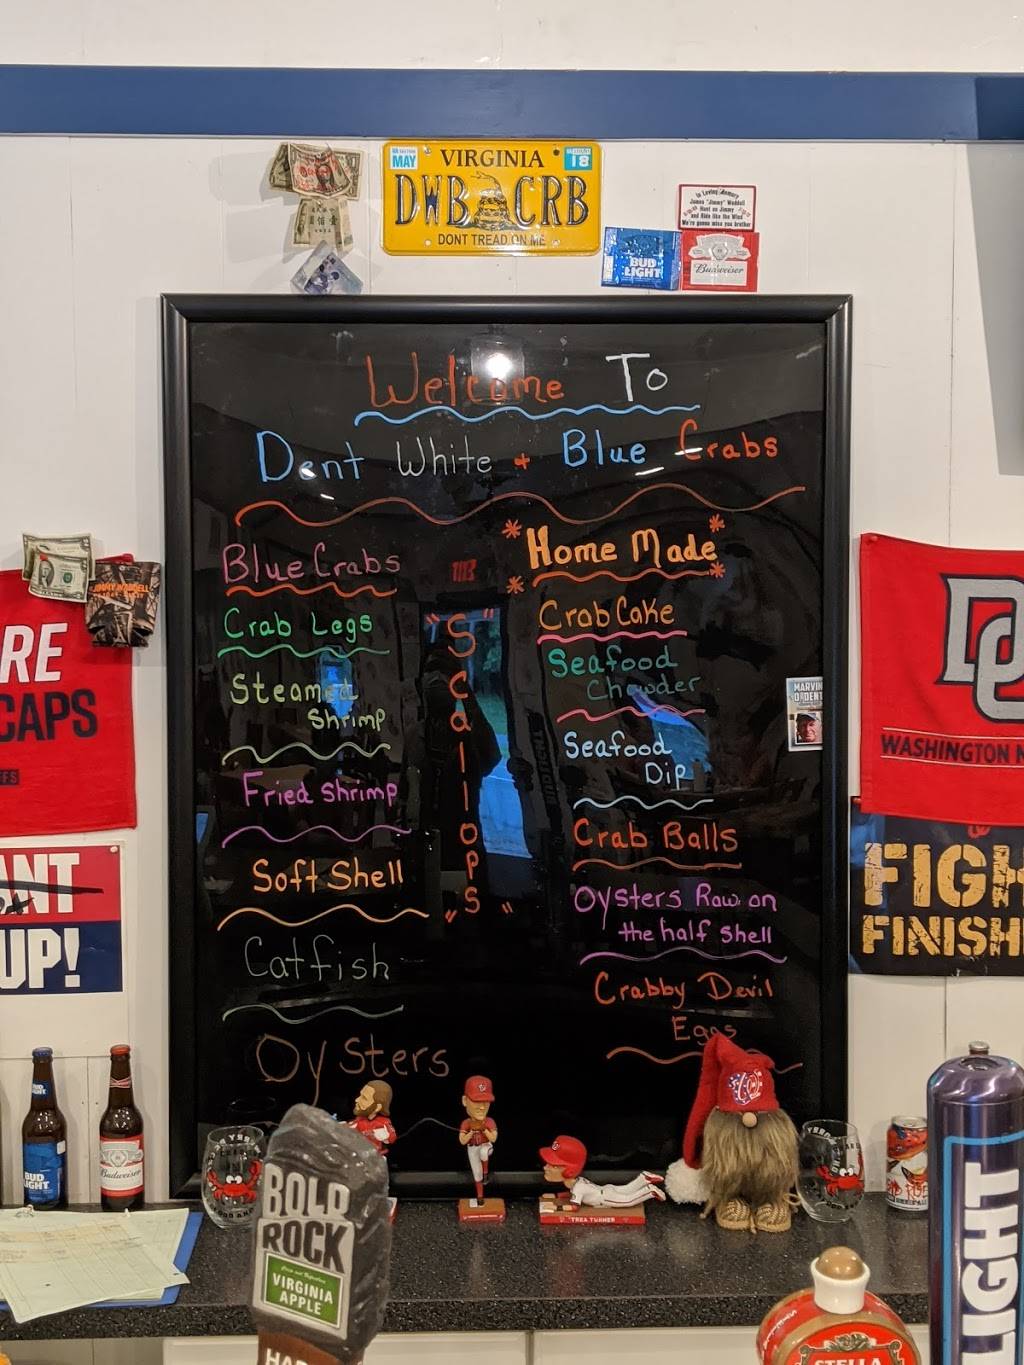 MAY
VIRGINIA
18
DWB CRB
DONT TREAD ON ME
In Loving Memory
James "Jimmy" Waddell
Hunt on Jimmy
and Ride like the Wind
We're gonna miss you brother
BUD
LIGHT
Budweiser
Welcome To
Dent White + Blue Crabs
Blue Crabs
Crab Legs
Steamed
Shrimp
Fried Shrimp
Soft Shell
Catfish
Oysters
"Scallops"
*Home Made*
Crab Cake
Seafood
Chowder
Seafood
Dip
Crab Balls
Oysters Raw on
the half Shell
Crabby Devil
Eggs
MARVIN
D. DENT
RE
CAPS
ANT
UP!
DC
WASHINGTON N
FIGH
FINISH
BUD
LIGHT
Budweiser
BOLD
ROCK
VIRGINIA
APPLE
HAR
TREA TURNER
STELLA
LIGHT